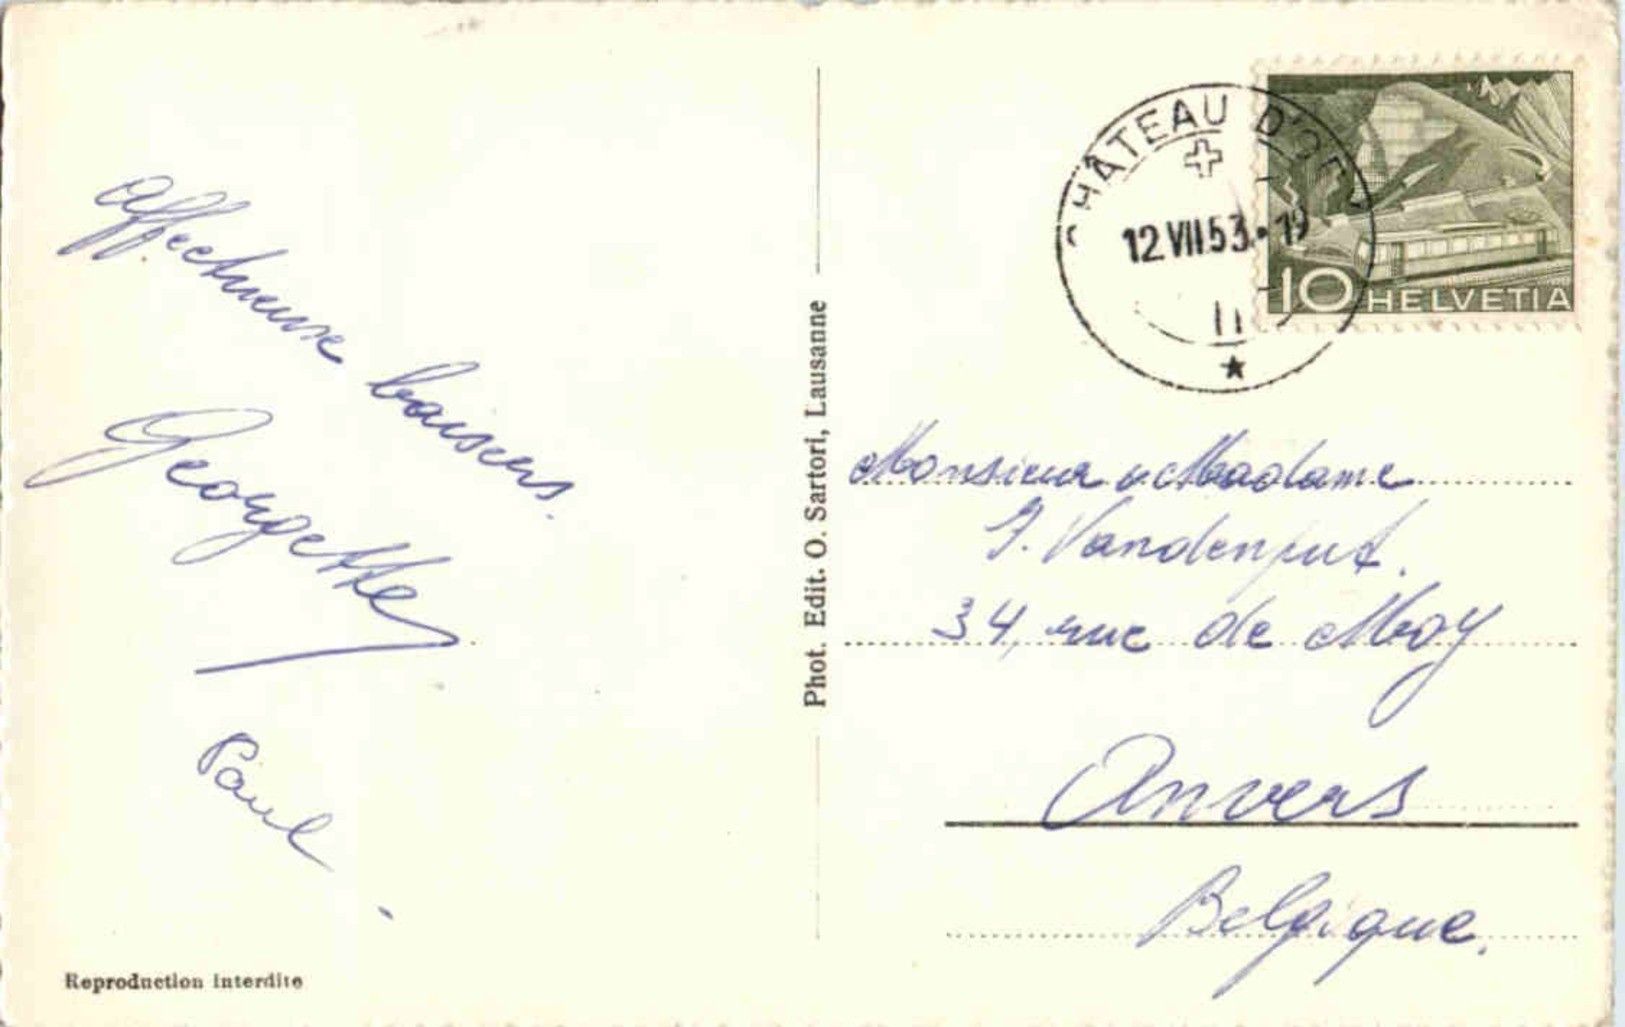 affectueux baisers.
Georgette
Paul
Reproduction interdite
Phot. Edit. O. Sartori, Lausanne
CHÂTEAU D'OEX
12.VII.53.-19
10 HELVETIA
Monsieur & Madame
J. Vandenput.
34, rue de Moy
Anvers
Belgique.